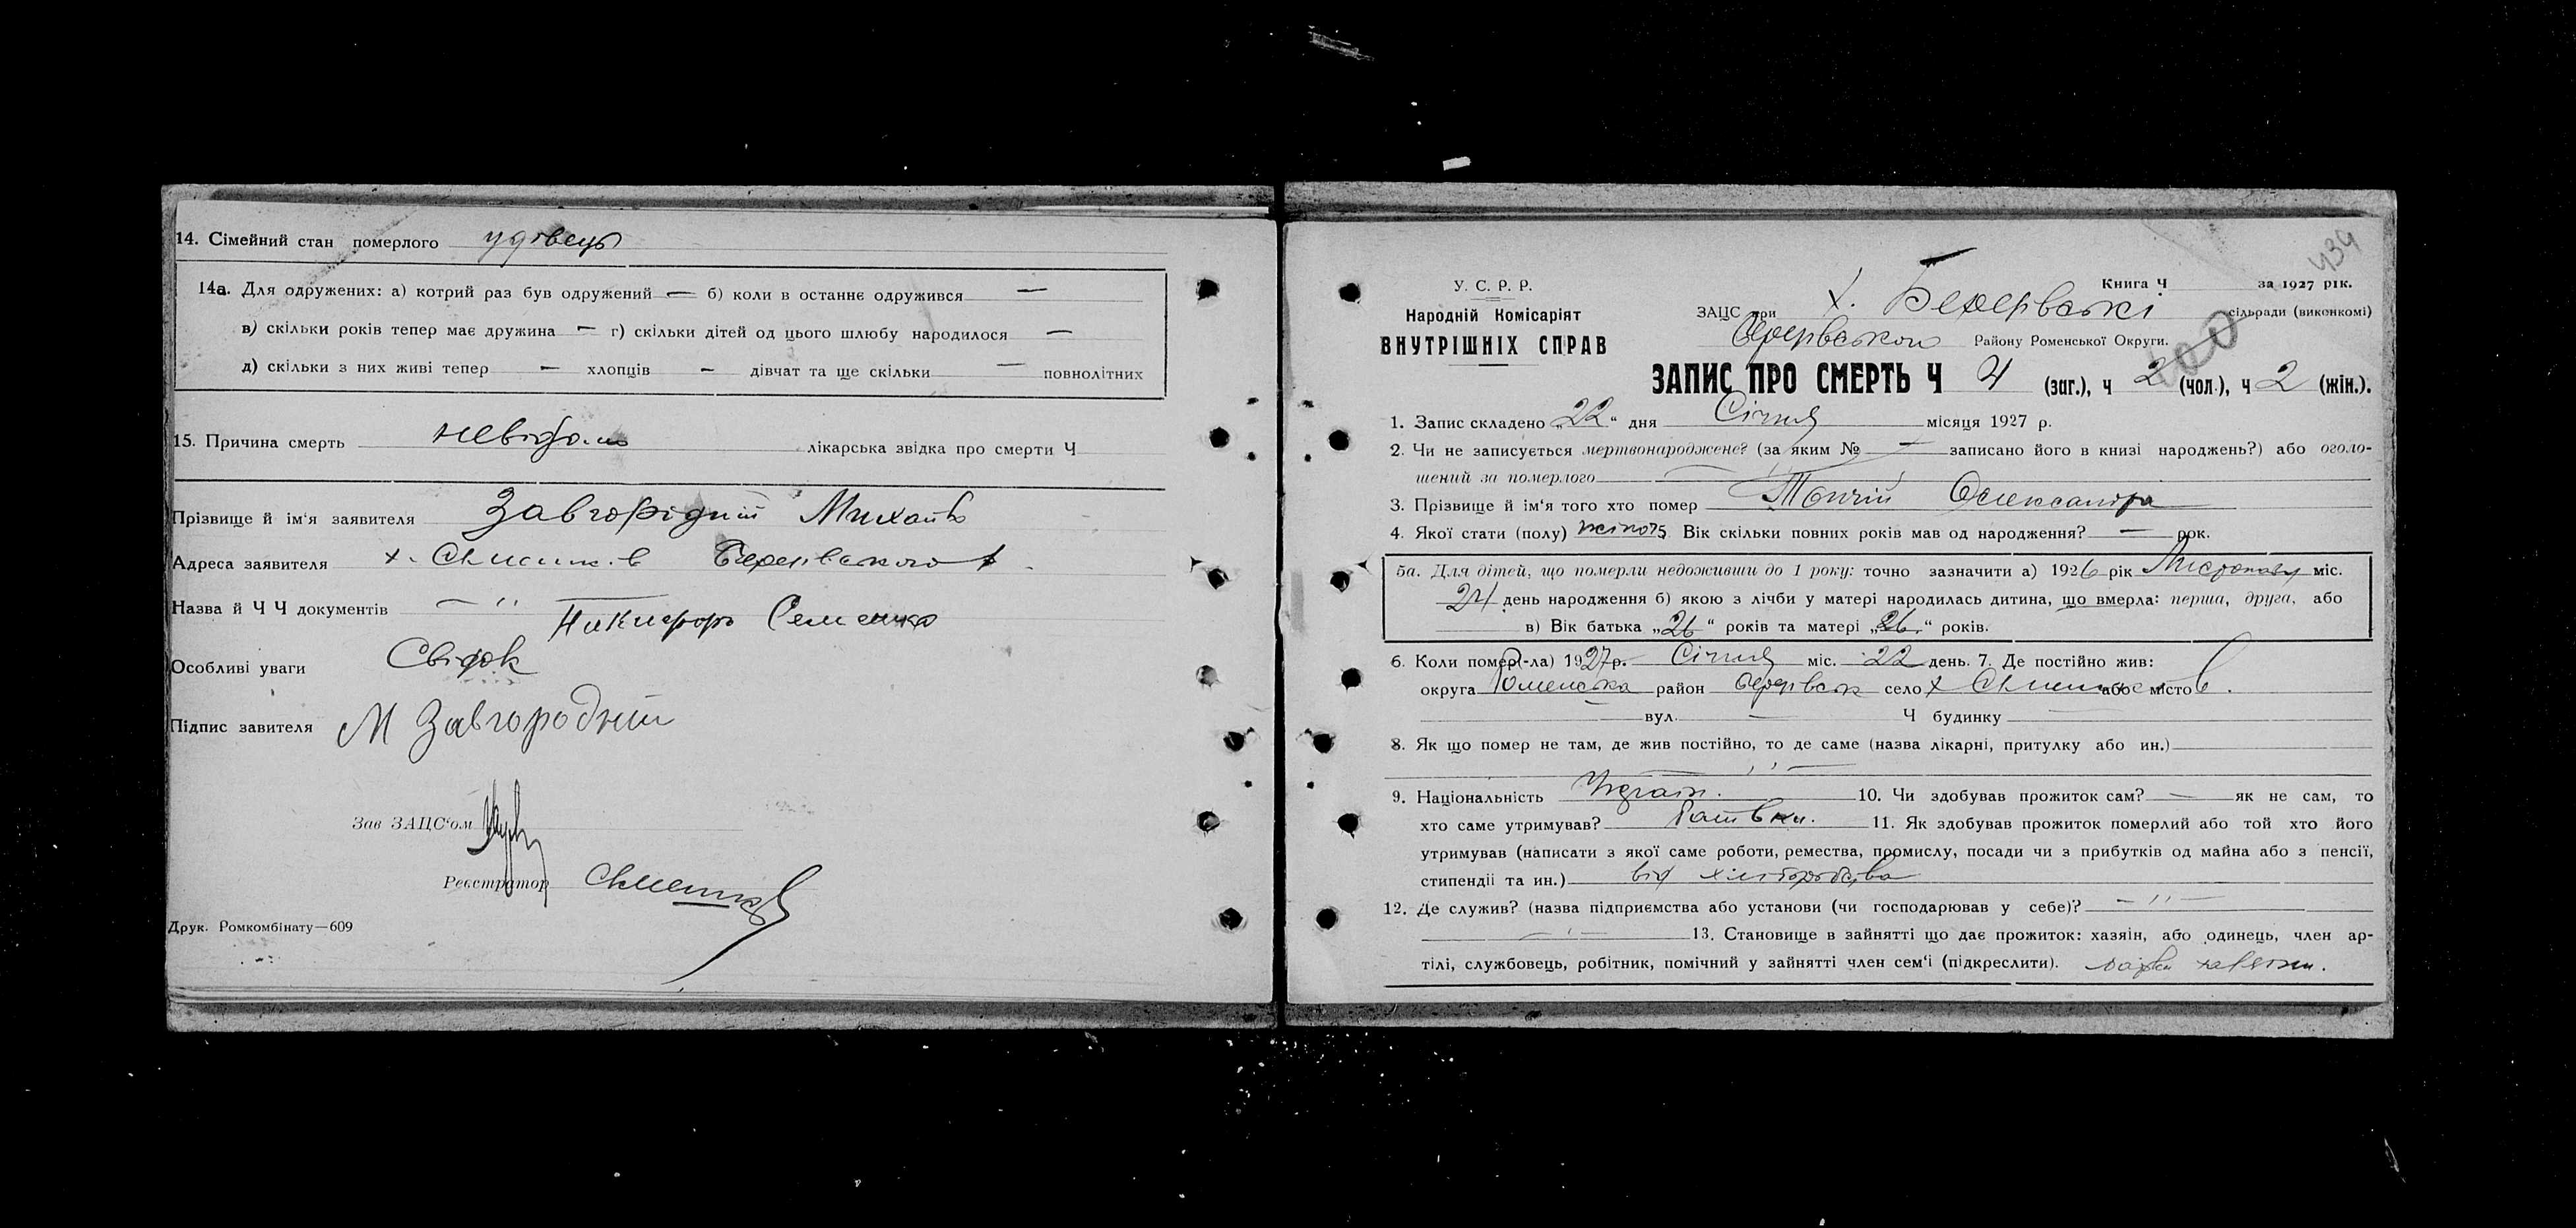 14. Сімейний стан померлого удівець
14а. Для одружених: а) котрий раз був одружений — б) коли в останнє одружився —
в) скільки років тепер має дружина — г) скільки дітей од цього шлюбу народилося —
д) скільки з них живі тепер — хлопців — дівчат та ще скільки — повнолітних
15. Причина смерть невідомо лікарська звідка про смерти Ч
Прізвище й ім‘я заявителя Завгорідній Михайло
Адреса заявителя х.
Назва й Ч Ч документів — '' —
Никифоръ Семенко
Особливі уваги Свідок
Підпис завителя М Завгородний
Зав ЗАЦС‘ом
Реєстратор
Друк. Ромкомбінату—609
434
У. С. Р. Р.
Народній Комісаріят
ВНУТРІШНІХ СПРАВ
Книга Ч за 1927 рік.
ЗАЦС при х. сільради (виконкомі)
Району Роменської Округи.
ЗАПИС ПРО СМЕРТЬ Ч 4 (заг.), ч 2 (чол.), ч 2 (жін.).
1. Запис складено „22“ дня Січня місяця 1927 р.
2. Чи не записується мертвонароджене? (за яким № — записано його в книзі народжень?) або оголо-
шений за померлого — '' —
3. Прізвище й ім‘я того хто помер Олександра
4. Якої стати (полу) жіноч Вік скільки повних років мав од народження? — рок.
5а. Для дітей, що померли недоживши до 1 року: точно зазначити а) 1926 рік Листопаду міс.
24 день народження б) якою з лічби у матері народилась дитина, що вмерла: перша, друга, або
в) Вік батька „26“ років та матері „26.“ років.
6. Коли помер(-ла) 1927 р. Січня міс. 22 день. 7. Де постійно жив:
округа Роменська район село х або місто
— вул. — Ч будинку —
8. Як що помер не там, де жив постійно, то де саме (назва лікарні, притулку або ин.)
— '' —
9. Національність Україн. 10. Чи здобував прожиток сам? — як не сам, то
хто саме утримував? Батьки. 11. Як здобував прожиток померлий або той хто його
утримував (написати з якої саме роботи, ремества, промислу, посади чи з прибутків од майна або з пенсії,
стипендії та ин.) від хліборобства
12. Де служив? (назва підприємства або установи (чи господарював у себе)? — '' —
— '' — 13. Становище в зайнятті що дає прожиток: хазяін, або одинець, член ар-
тілі, службовець, робітник, помічний у зайнятті член сем‘і (підкреслити).